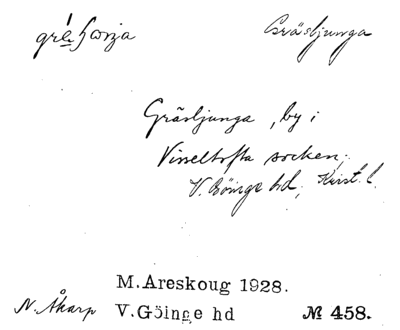 Gräsljunga
Gräsljunga, by i
Visseltofta socken,
V. Göinge hd, Krist. l.
M. Areskoug 1928.
N. Åkarp V. Göinge hd № 458.